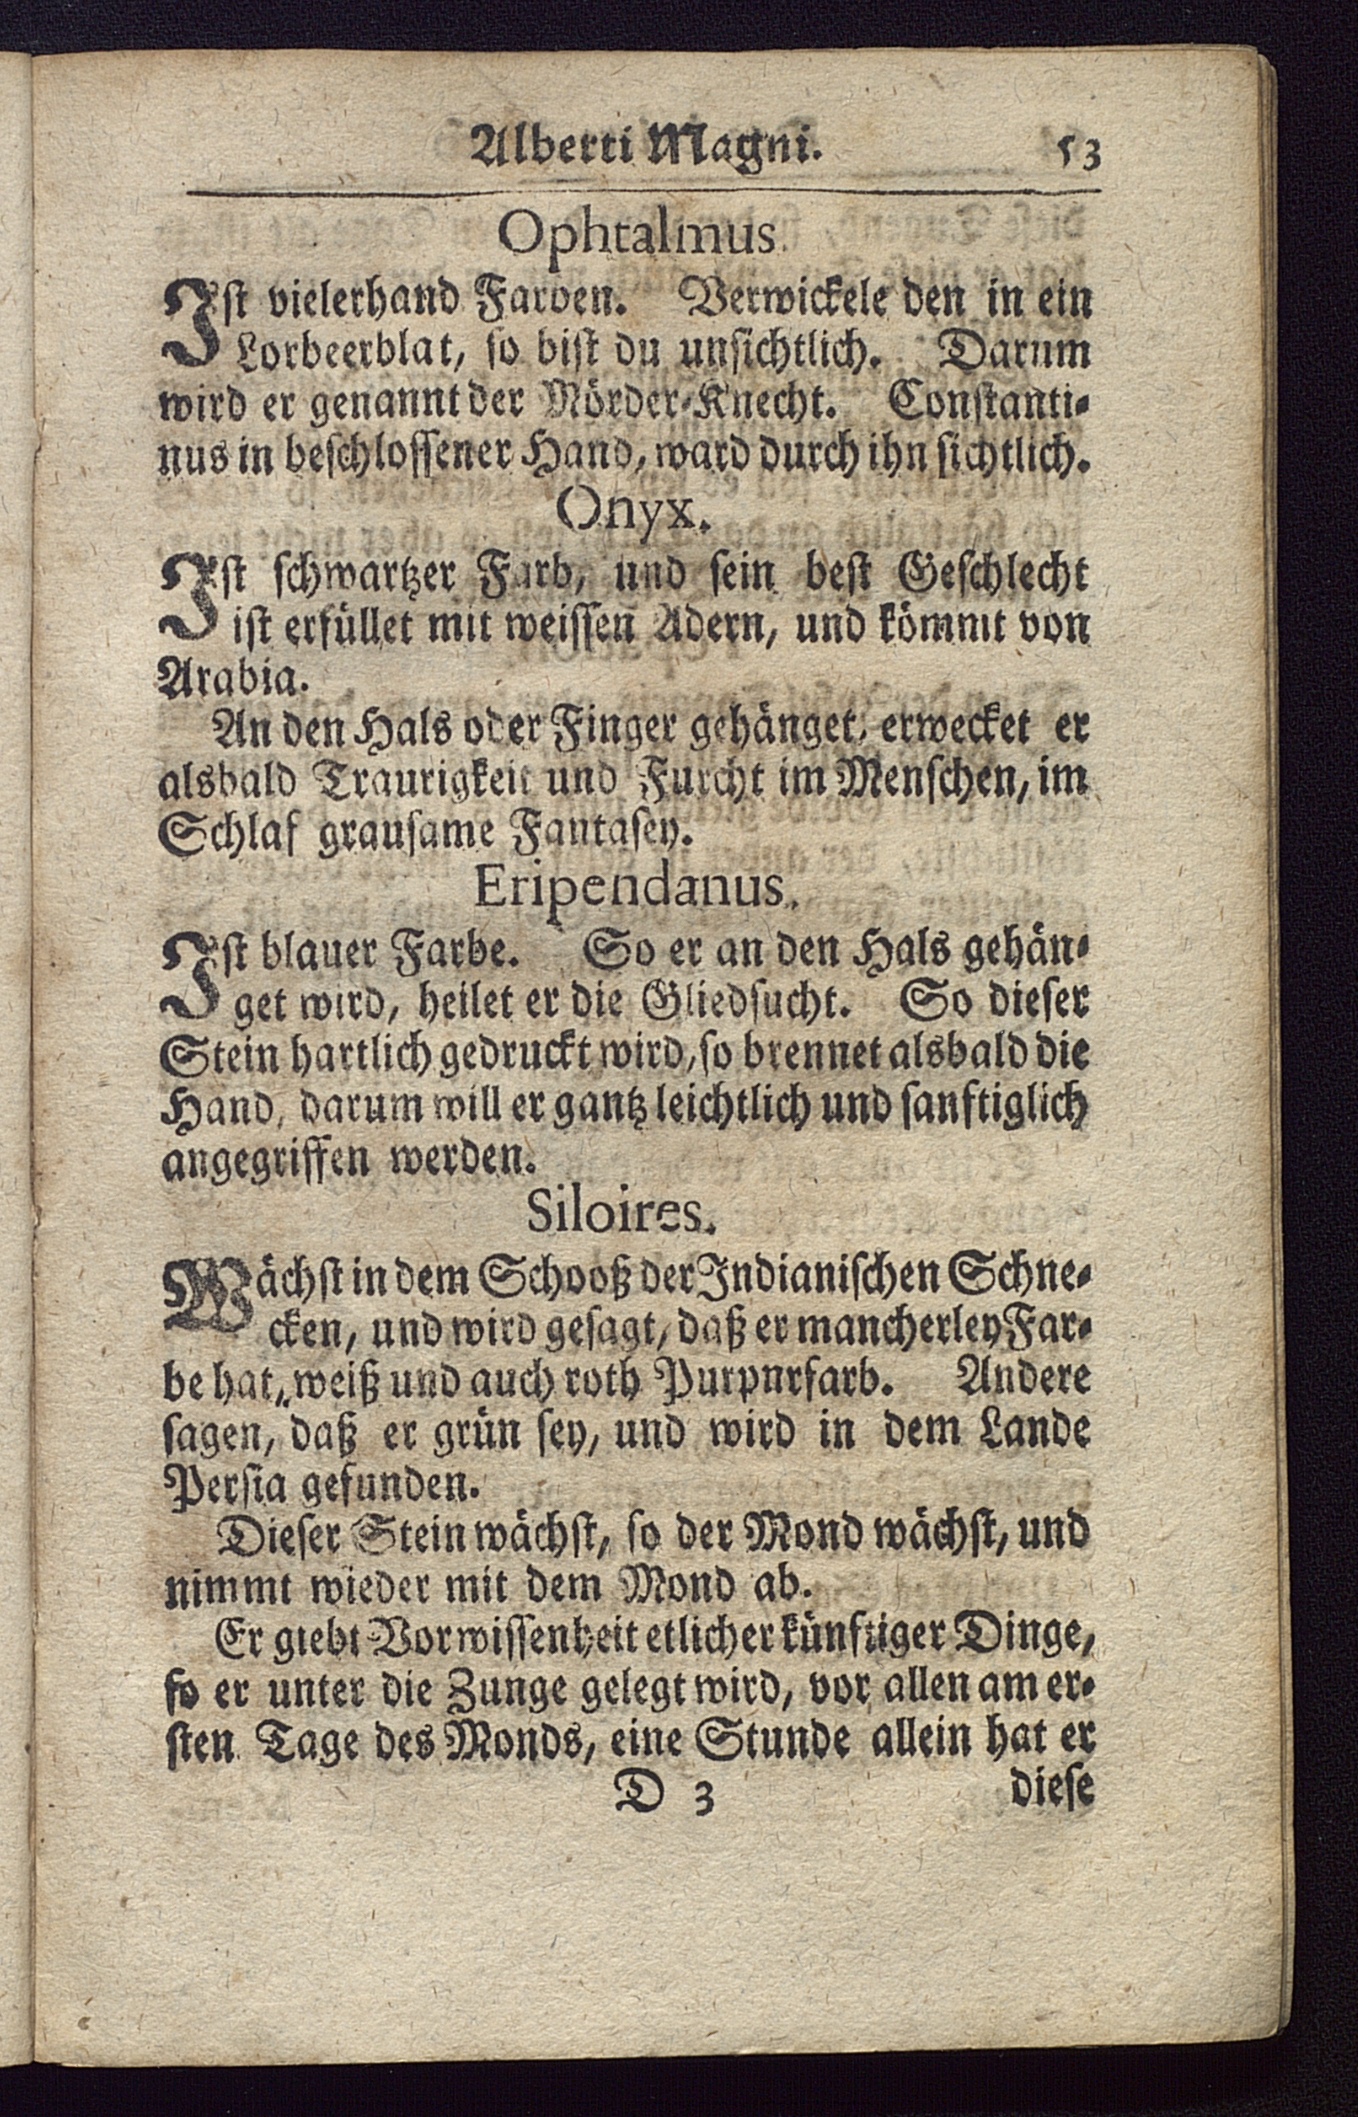 Alberti Magni. 53
Ophtalmus.
Ist vielerhand Farben. Verwickele den in ein
Lorbeerblat, so bist du unsichtlich. Darum
wird er genannt der Mörder-Knecht. Constanti-
nus in beschlossener Hand, ward durch ihn sichtlich.
Onyx.
Ist schwartzer Farb, und sein best Geschlecht
ist erfüllet mit weissen Adern, und kömmt von
Arabia.
An den Hals oder Finger gehänget, erwecket er
alsbald Traurigkeit und Furcht im Menschen, im
Schlaf grausame Fantasey.
Eripendanus.
Ist blauer Farbe. So er an den Hals gehän-
get wird, heilet er die Gliedsucht. So dieser
Stein hartlich gedruckt wird, so brennet alsbald die
Hand, darum will er gantz leichtlich und sanftiglich
angegriffen werden.
Siloires.
Wächst in dem Schooß der Indianischen Schne-
cken, und wird gesagt, daß er mancherley Far-
be hat, weiß und auch roth Purpurfarb. Andere
sagen, daß er grün sey, und wird in dem Lande
Persia gefunden.
Dieser Stein wächst, so der Mond wächst, und
nimmt wieder mit dem Mond ab.
Er giebt Vorwissenheit etlicher künftiger Dinge,
so er unter die Zunge gelegt wird, vor allen am er-
sten Tage des Monds, eine Stunde allein hat er
D 3 diese